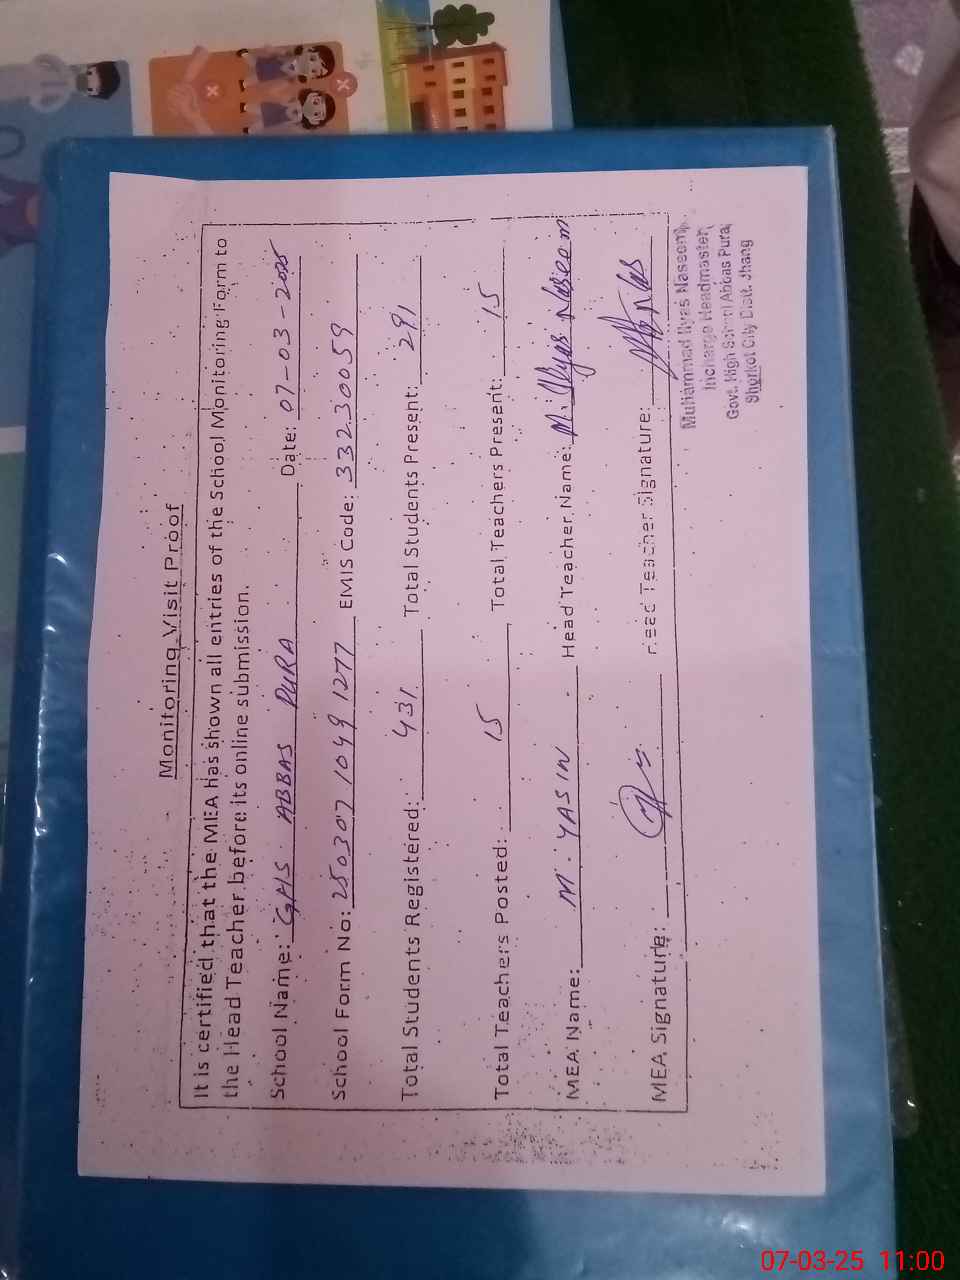 Monitoring Visit Proof
It is certified that the MEA has shown all entries of the School Monitoring Form to
the Head Teacher before its online submission.
School Name: GHS ABBAS PURA Date: 07-03-2025
School Form No: 25030710491277 EMIS Code: 33230059
Total Students Registered: 431 Total Students Present: 291
Total Teachers Posted: 15 Total Teachers Present: 15
MEA Name: M. YASIN Head Teacher Name: M. Ilyas Naseem
MEA Signature: Head Teacher Signature:
Muhammad Ilyas Naseem
Incharge Headmaster
Govt. High School Abbas Pura
Shorkot City Distt. Jhang
07-03-25 11:00